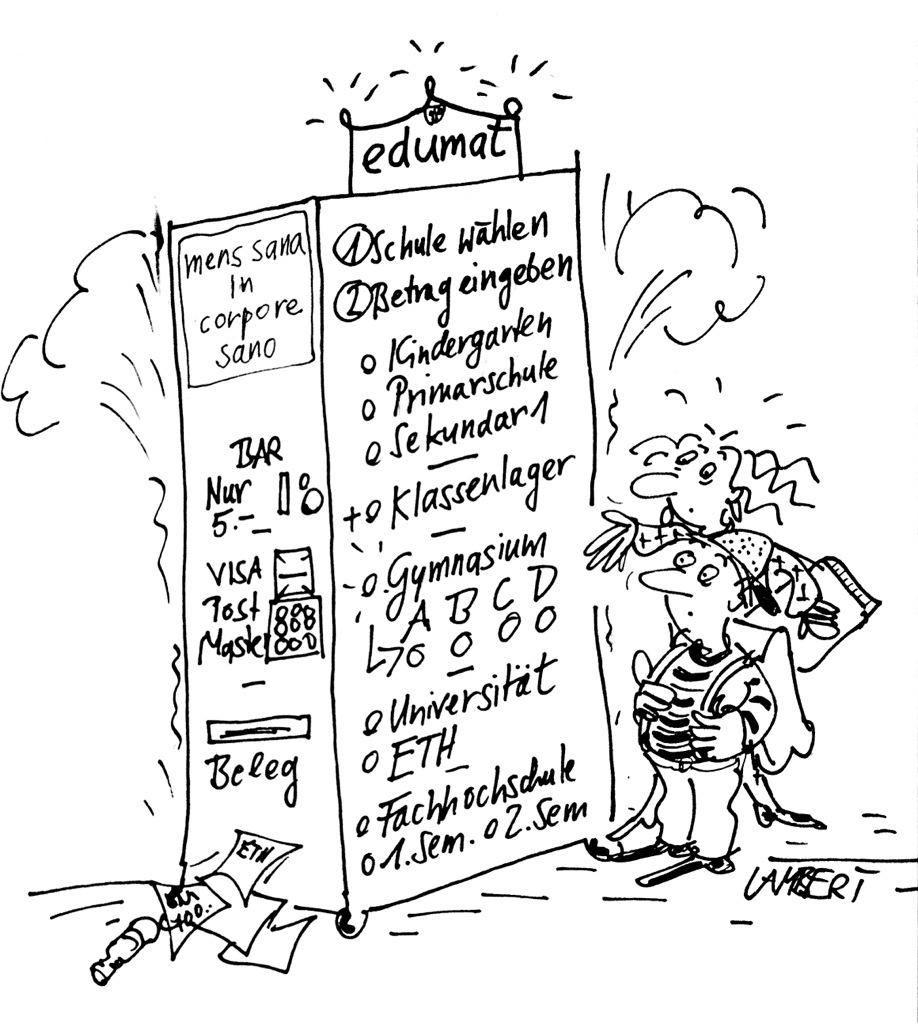 edumat
mens sana
in
corpore
sano
BAR
Nur
5.-
VISA
Post
Master
Beleg
① Schule wählen
② Betrag eingeben
Kindergarten
Primarschule
Sekundar 1
+ Klassenlager
Gymnasium
A B C D
Universität
ETH
Fachhochschule
1. Sem. 2. Sem
ETH
100.-
LAMBERT